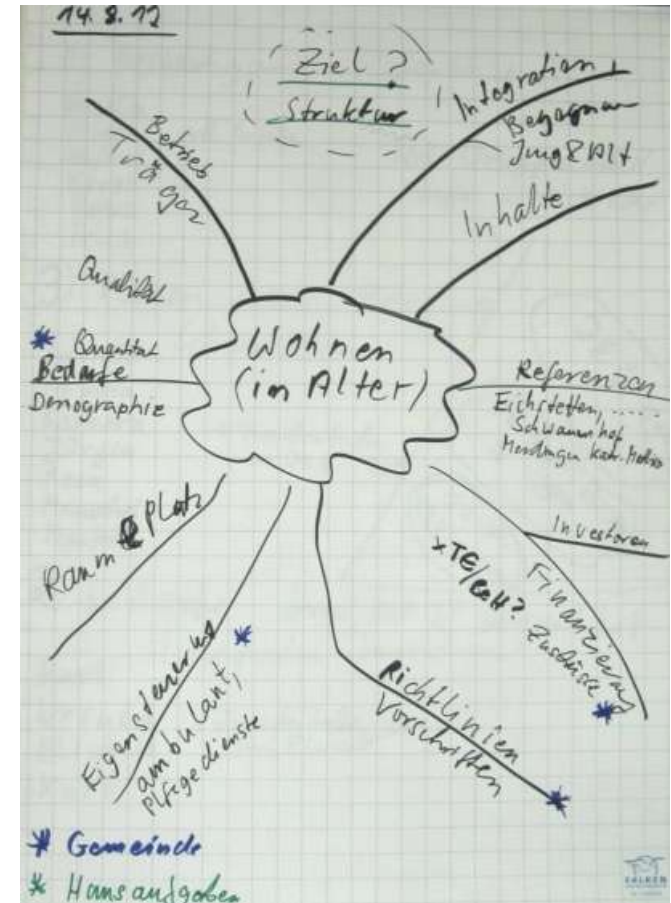 14.8.12
Ziel?
Struktur
Integration
Begegnen
Jung & Alt
Inhalte
Betrieb
Träger
Qualität
Quantität
Bedarfe
Demographie
Wohnen
(im Alter)
Referenzen
Eichstetten, .....
Schwanenhof
Investoren
Finanzierung
* TE/
Zuschüsse *
Raum & Platz
Eigensteuerung *
ambulant,
Pflegedienste
Richtlinien
Vorschriften *
* Gemeinde
* Hausaufgaben
FALKEN